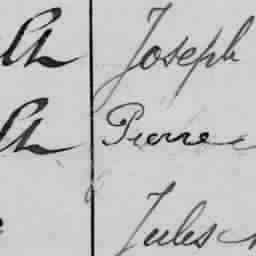 Joseph
Pierre
Jules